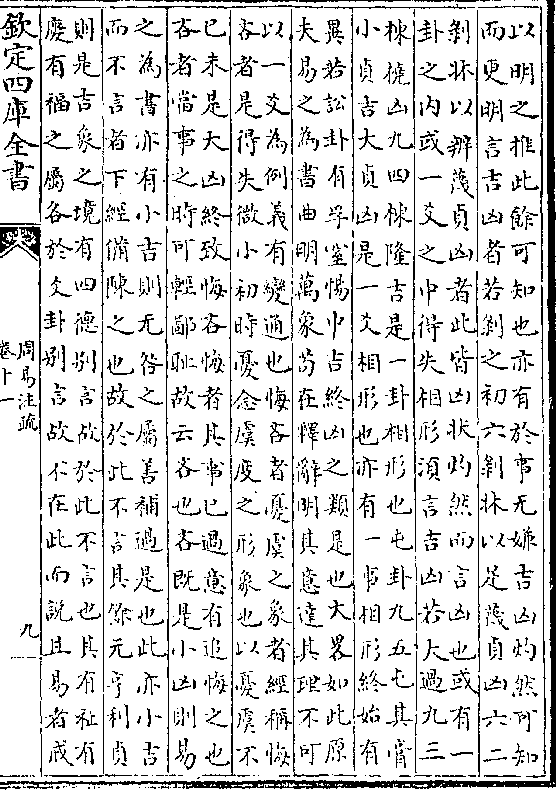 以明之推此餘可知也亦有於事无嫌吉凶灼然可知
而更明言吉凶者若剝之初六剝牀以足蔑貞凶六二
剝牀以辨蔑貞凶者此皆凶狀灼然而言凶也或有一
卦之内或一爻之中得失相形須言吉凶若大過九三
棟橈凶九四棟隆吉是一卦相形也屯卦九五屯其膏
小貞吉大貞凶是一爻相形也亦有一事相形終始有
異若訟卦有孚窒惕中吉終凶之類是也大畧如此原
夫易之為書曲明萬象苟在釋辭明其意達其理不可
以一爻為例義有變通也悔吝者憂虞之象者經稱悔
吝者是得失微小初時憂念虞度之形象也以憂虞不
已未是大凶終致悔吝悔者其事已過意有追悔之也
吝者當事之時可輕鄙恥故云吝也吝既是小凶則易
之為書亦有小吉則无咎之屬善補過是也此亦小吉
而不言者下經備陳之也故於此不言其餘元亨利貞
則是吉象之境有四德别言故於此不言也其有祉有
慶有福之屬各於爻卦别言故不在此而說且易者戒
欽定四庫全書
周易注疏
卷十一
九